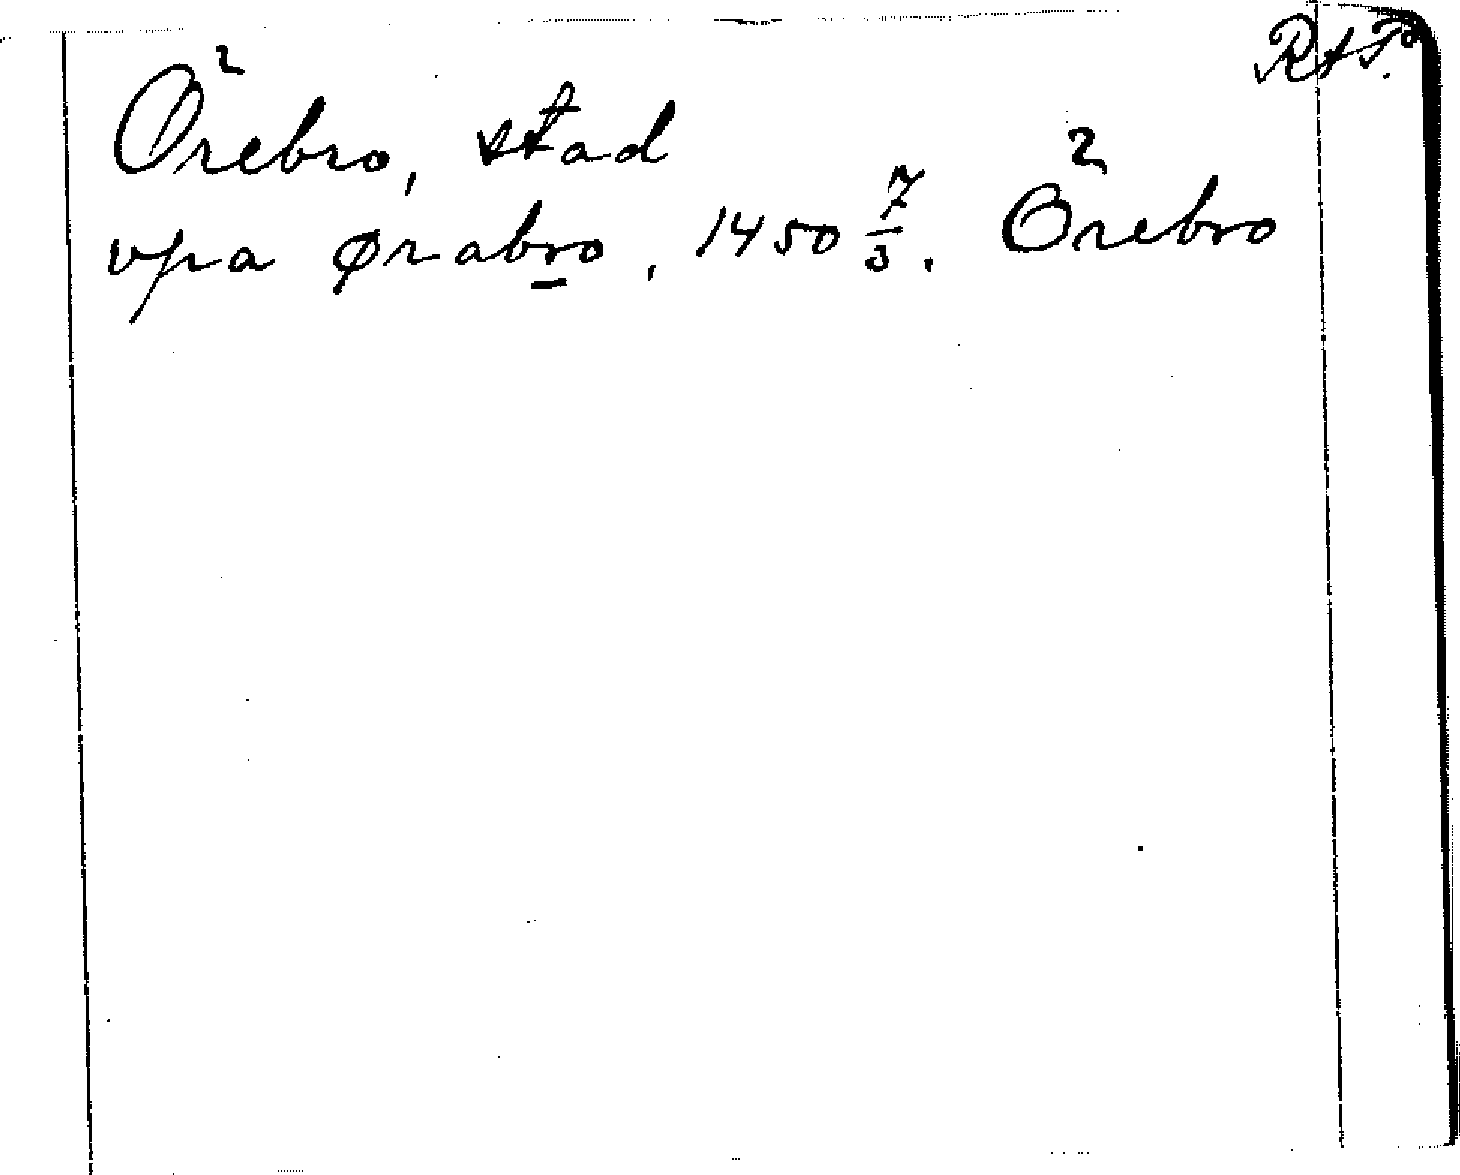 RAP.
Örebro, stad
vpa ørabro, 1450 7/3. Örebro